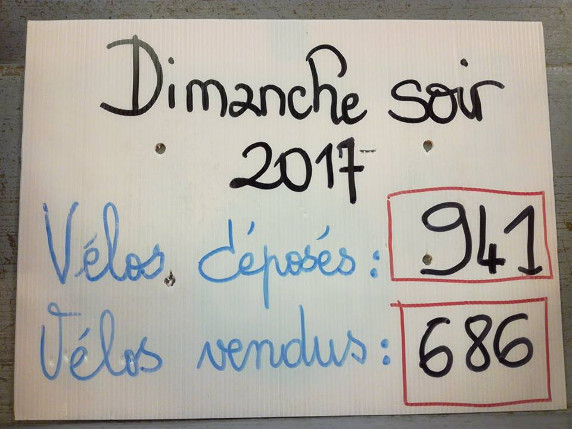 Dimanche soir
2017
Vélos déposés : 941
Vélos vendus : 686